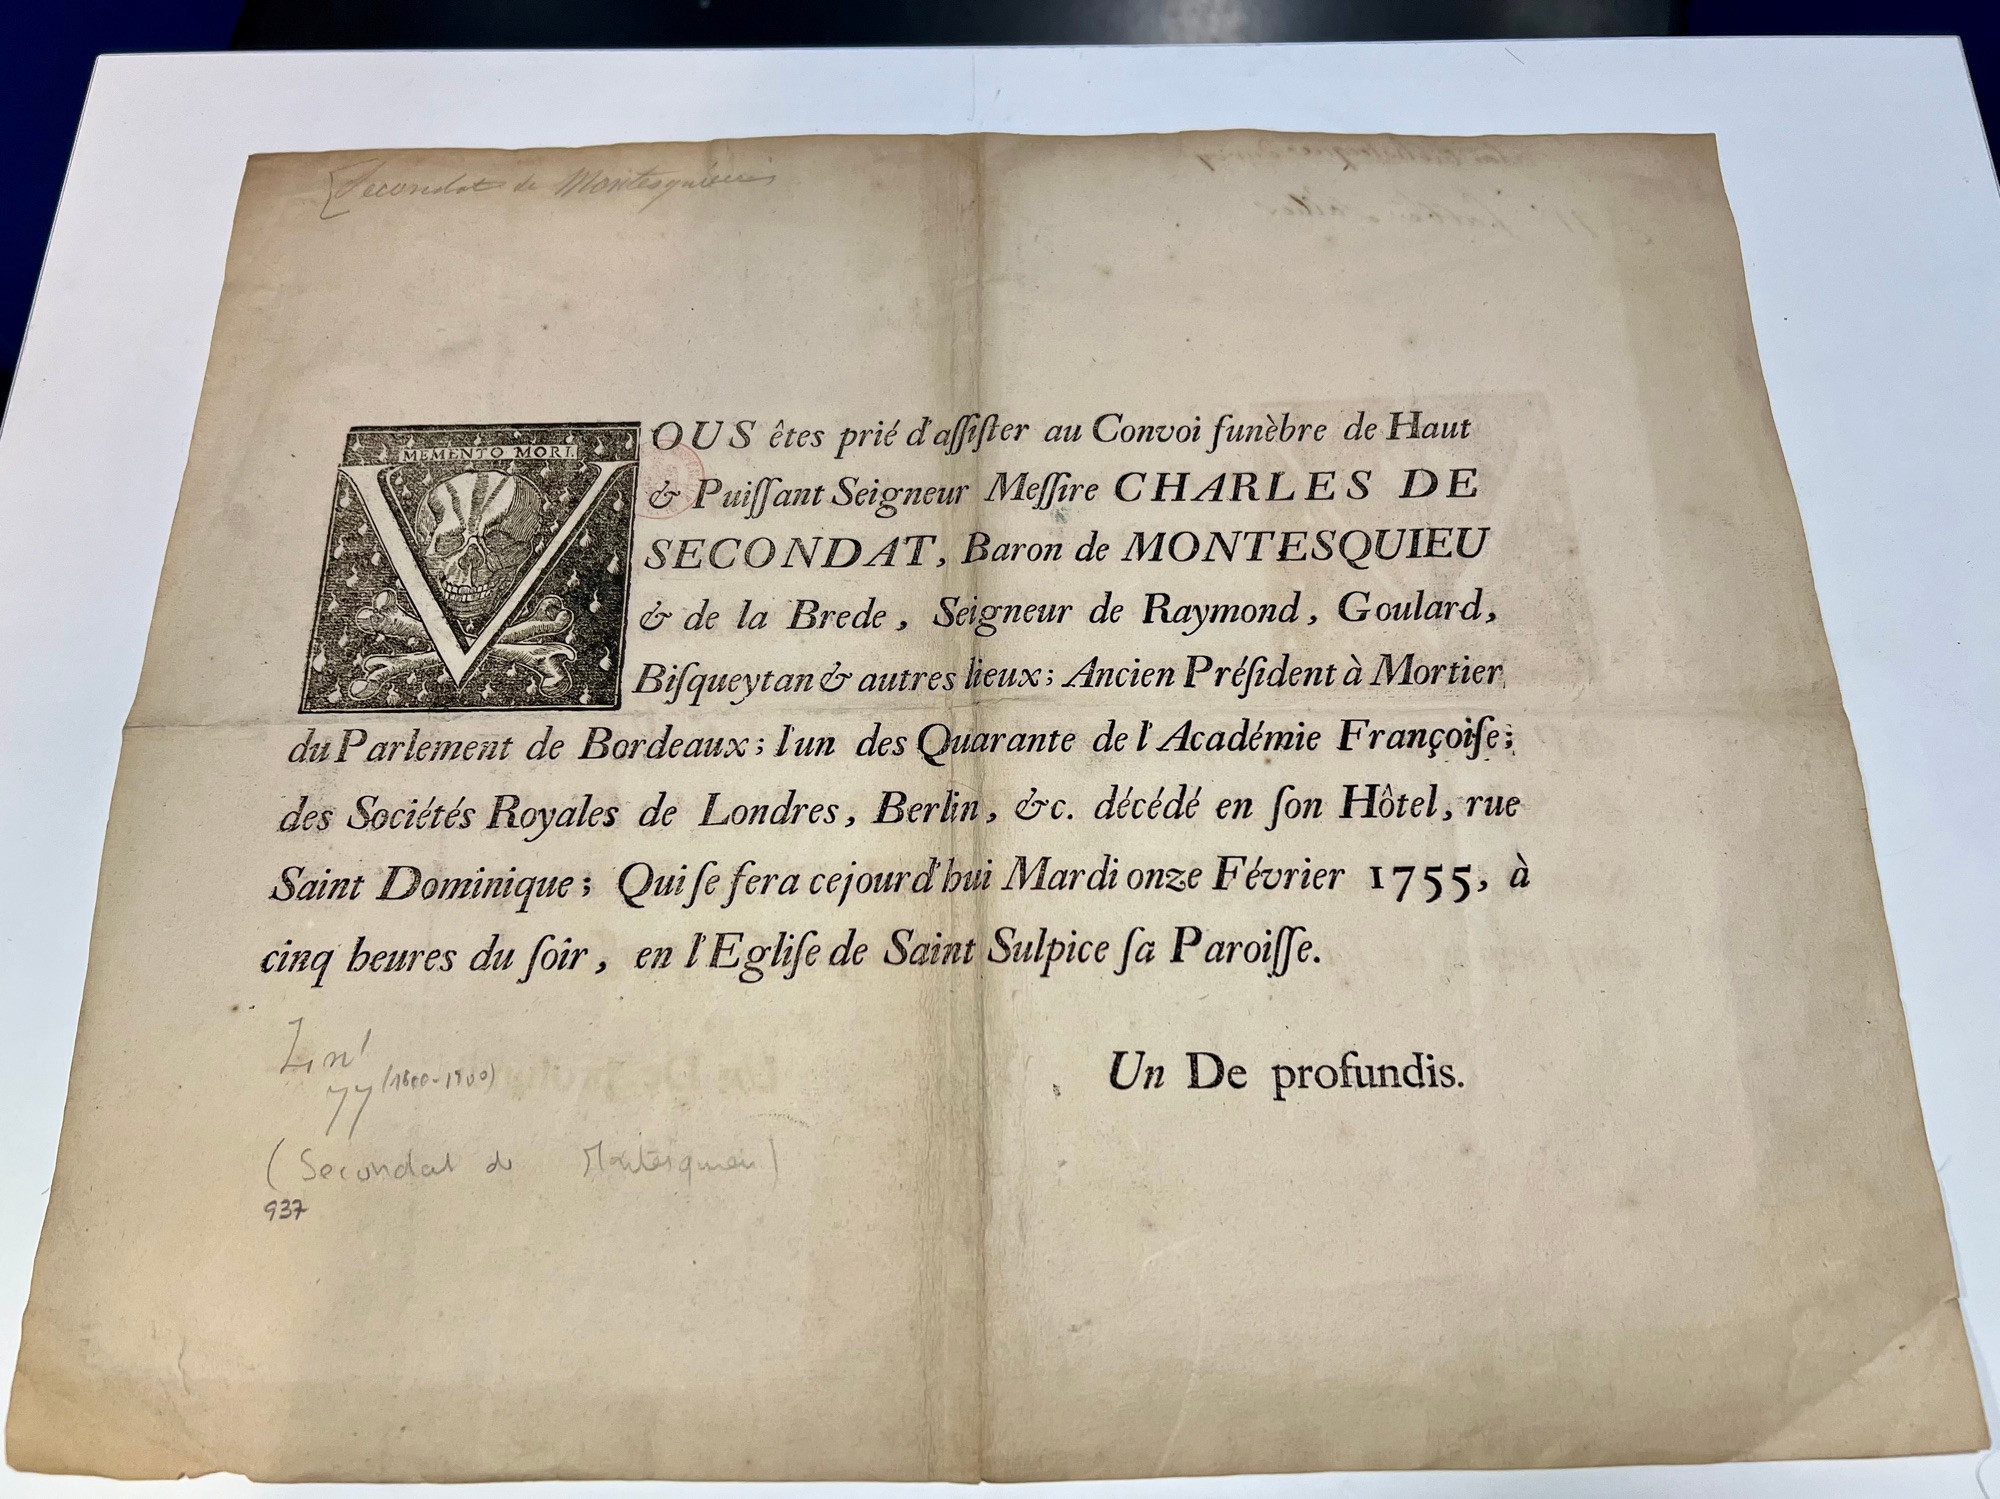 Secondat de Montesquieu
MEMENTO MORI
VOUS êtes prié d'aſſiſter au Convoi funèbre de Haut
& Puiſſant Seigneur Meſſire CHARLES DE
SECONDAT, Baron de MONTESQUIEU
& de la Brede, Seigneur de Raymond, Goulard,
Biſqueytan & autres lieux; Ancien Préſident à Mortier
du Parlement de Bordeaux; l'un des Quarante de l'Académie Françoiſe;
des Sociétés Royales de Londres, Berlin, &c. décédé en ſon Hôtel, rue
Saint Dominique; Qui ſe fera cejourd'hui Mardi onze Février 1755, à
cinq heures du ſoir, en l'Egliſe de Saint Sulpice ſa Paroiſſe.
Un De profundis.
77 (1800-1900)
(Secondat de Montesquieu)
937